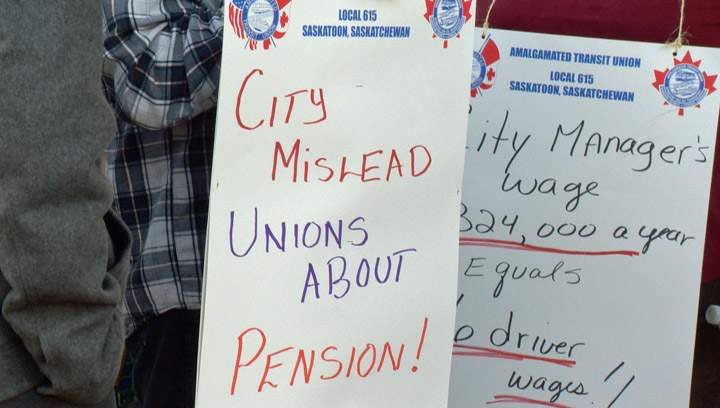 LOCAL 615
SASKATOON, SASKATCHEWAN
CITY
MISLEAD
UNIONS
ABOUT
PENSION!
AMALGAMATED TRANSIT UNION
LOCAL 615
SASKATOON, SASKATCHEWAN
ity MANAger's
wage
324,000 a year
Equals
driver
wages!!